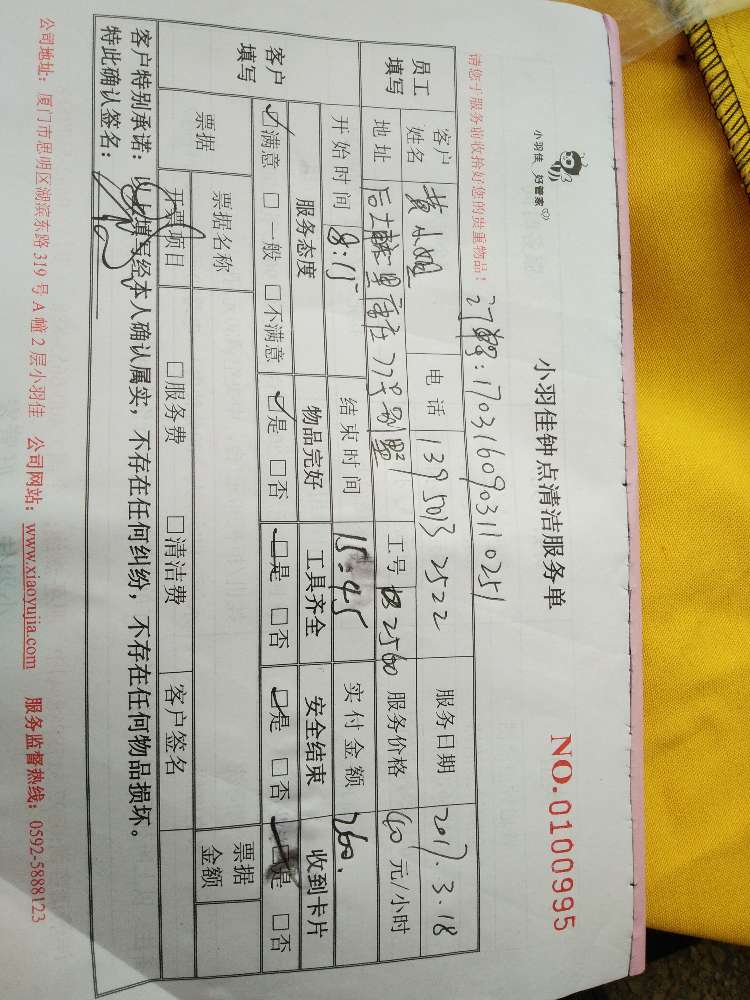 小羽佳 好管家
小羽佳钟点清洁服务单
NO.0100995
请您于服务前收拾好您的贵重物品！
17031609031 10251
员工填写
客户姓名 黄小姐 电话 139 5013 2522 服务日期 2017.3.18
地址 后土 里 号 工号 2560 服务价格 40 元/小时
开始时间 8:15 结束时间 15:45 实付金额 260.
客户填写
服务态度 物品完好 工具齐全 安全结束 收到卡片
☑满意 □一般 □不满意 ☑是 □否 ☑是 □否 ☑是 □否 ☑是 □否
票据 票据名称 票据金额
开票项目 □服务费 □清洁费 客户签名
客户特别承诺：以上填写经本人确认属实，不存在任何纠纷，不存在任何物品损坏。
特此确认签名：
公司地址：厦门市思明区湖滨东路 319 号 A 幢 2 层小羽佳 公司网站：www.xiaoyujia.com 服务监督热线：0592-5888123